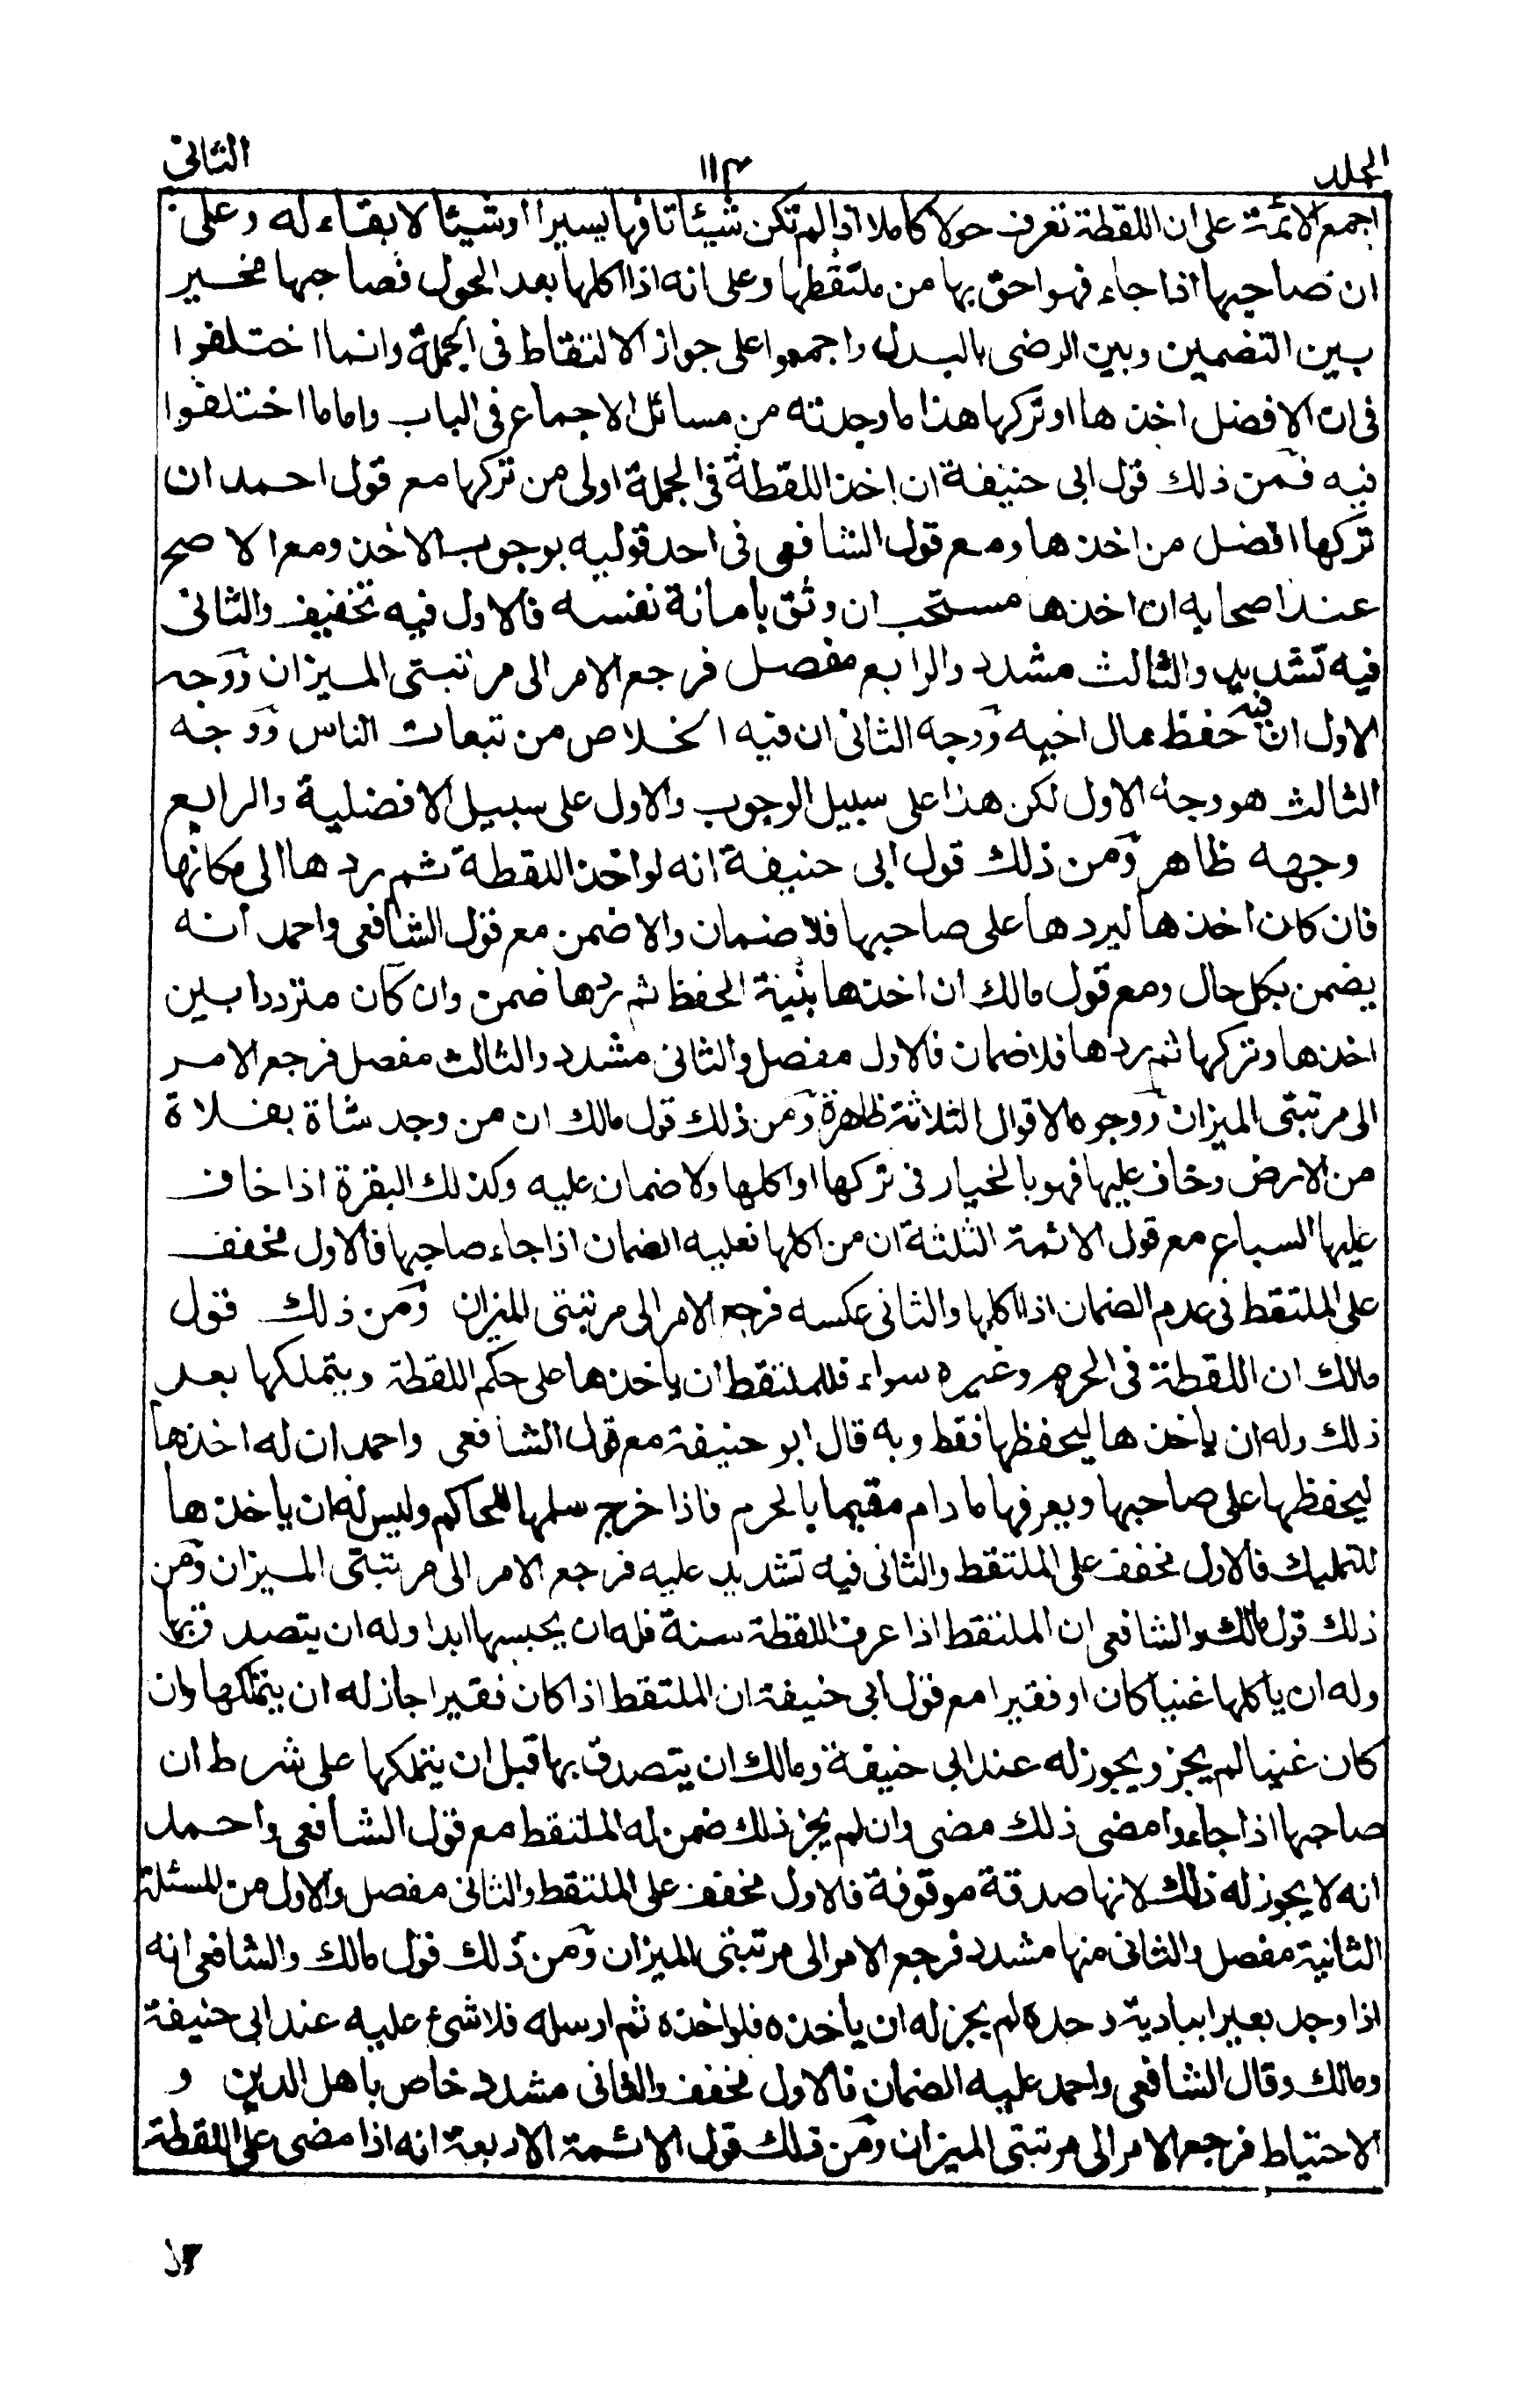 الجلد ١١٣ الثاني
اجمع الائمة على ان اللقطة تعرف حولا كاملا اذا لم تكن شيئا تافها يسيرا اوشيئا لا بقاء له وعلى
ان صاحبها اذا جاء فهو احق بها من ملتقطها وعلى انه اذا اكلها بعد الحول فصاحبها مخير
بين التضمين وبين الرضى بالبدل واجمعوا على جواز الالتقاط فى الجملة وانما اختلفوا
فى ان الافضل اخذها او تركها هذا ما وجدته من مسائل الاجماع فى الباب واما ما اختلفوا
فيه فمن ذلك قول ابى حنيفة ان اخذ اللقطة فى الجملة اولى من تركها مع قول احمد ان
تركها افضل من اخذها ومع قول الشافعى فى احد قوليه بوجوب الاخذ ومع الاصح
عند اصحابه ان اخذها مستحب ان وثق بامانة نفسه فالاول فيه تخفيف والثانى
فيه تشديد والثالث مشدد والرابع مفصل فرجع الامر الى مرتبتى الميزان ووجه
الاول ان فيه حفظ مال اخيه ووجه الثانى ان فيه الخلاص من تبعات الناس ووجه
الثالث هو وجه الاول لكن هذا على سبيل الوجوب والاول على سبيل الافضلية والرابع
وجهه ظاهر ومن ذلك قول ابى حنيفة انه لو اخذ اللقطة ثم ردها الى مكانها
فان كان اخذها ليردها على صاحبها فلا ضمان والا ضمن مع قول الشافعى واحمد انه
يضمن بكل حال ومع قول مالك ان اخذها بنية الحفظ ثم ردها ضمن وان كان مترددا بين
اخذها وتركها ثم ردها فلا ضمان فالاول مفصل والثانى مشدد والثالث مفصل فرجع الامر
الى مرتبتى الميزان ووجوه الاقوال الثلاثة ظاهرة ومن ذلك قول مالك ان من وجد شاة بفلاة
من الارض وخاف عليها فهو بالخيار فى تركها او اكلها ولا ضمان عليه وكذلك البقرة اذا خاف
عليها السباع مع قول الائمة الثلثة ان من اكلها فعليه الضمان اذا جاء صاحبها فالاول مخفف
على الملتقط فى عدم الضمان اذا اكلها والثانى عكسه فرجع الامر الى مرتبتى الميزان ومن ذلك قول
مالك ان اللقطة فى الحرم وغيره سواء فللملتقط ان ياخذها على حكم اللقطة ويتملكها بعد
ذلك وله ان ياخذها ليحفظها فقط وبه قال ابو حنيفة مع قول الشافعى واحمد ان له اخذها
ليحفظها على صاحبها ويعرفها ما دام مقيما بالحرم فاذا خرج سلمها للحاكم وليس له ان ياخذها
للتمليك فالاول مخفف على الملتقط والثانى فيه تشديد عليه فرجع الامر الى مرتبتى الميزان ومن
ذلك قول مالك والشافعى ان الملتقط اذا عرف اللقطة سنة فله ان يحبسها ابدا وله ان يتصدق بها
وله ان ياكلها غنيا كان او فقيرا مع قول ابى حنيفة ان الملتقط اذا كان فقيرا جاز له ان يتملكها وان
كان غنيا لم يجز ويجوز له عند ابى حنيفة ومالك ان يتصدق بها قبل ان يتملكها على شرط ان
صاحبها اذا جاء وامضى ذلك مضى وان لم يجز ذلك ضمن له الملتقط مع قول الشافعى واحمد
انه لا يجوز له ذلك لانها صدقة موقوفة فالاول مخفف على الملتقط والثانى مفصل والاول من المسئلة
الثانية مفصل والثانى منها مشدد فرجع الامر الى مرتبتى الميزان ومن ذلك قول مالك والشافعى انه
اذا وجد بعيرا ببادية وحده لم يجز له ان يأخذه فلو اخذه ثم ارسله فلا شئ عليه عند ابى حنيفة
ومالك وقال الشافعى واحمد عليه الضمان فالاول مخفف والثانى مشدد خاص باهل الدين و
الاحتياط فرجع الامر الى مرتبتى الميزان ومن ذلك قول الائمة الاربعة انه اذا مضى على اللقطة